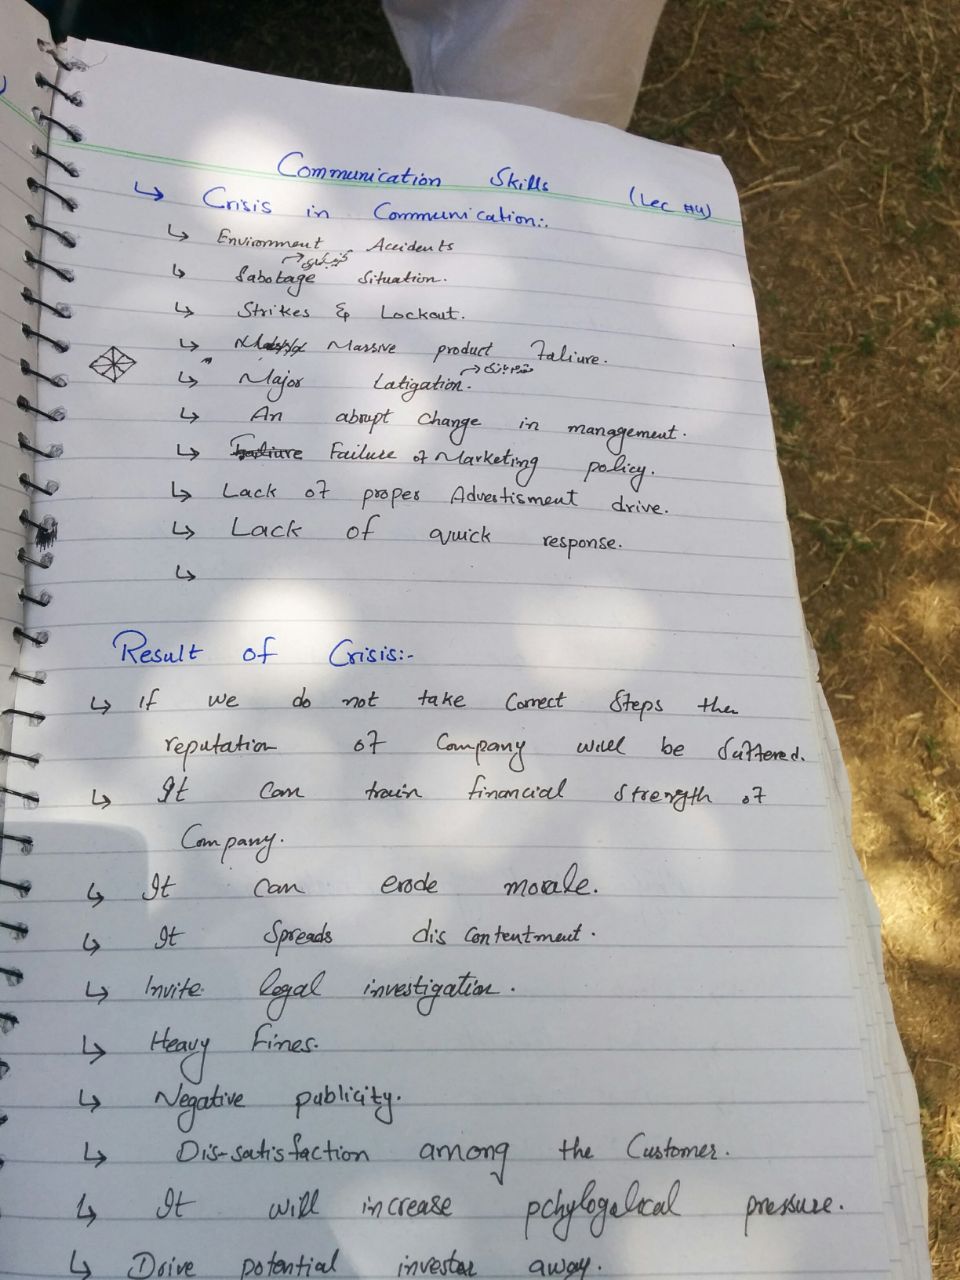 Communication Skills (Lec #4)
↳ Crisis in Communication:.
↳ Environment Accidents
↳ Sabotage Situation.
↳ Strikes & Lockout.
↳ Massive product Faliure.
↳ Major Latigation.
↳ An abrupt change in management.
↳ Failure of Marketing policy.
↳ Lack of proper Advertisment drive.
↳ Lack of quick response.
↳
Result of Crisis:-
↳ If we do not take Correct Steps then
reputation of Company will be Suffered.
↳ It can train financial Strength of
Company.
↳ It can erode morale.
↳ It Spreads dis contentment.
↳ Invite legal investigation.
↳ Heavy Fines.
↳ Negative publicity.
↳ Dis-satisfaction among the Customer.
↳ It will increase pchylogelical pressure.
↳ Drive potential investor away.